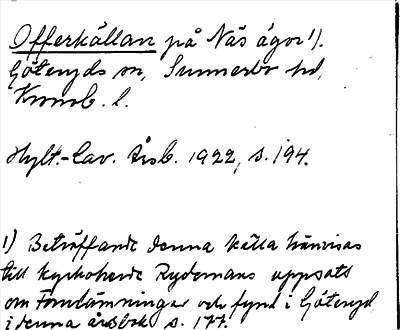 Offerkällan på Näs ägor 1).
Göteryds sn, Sunnerbo hd,
Kronob. l.
Hylt.-Cav. Årsb. 1922, s. 194.
1) Beträffande denna källa hänvisas
till kyrkoherde Rydemans uppsats
om Fornlämningar och fynd i Göteryd
i denna årsbok s. 177.